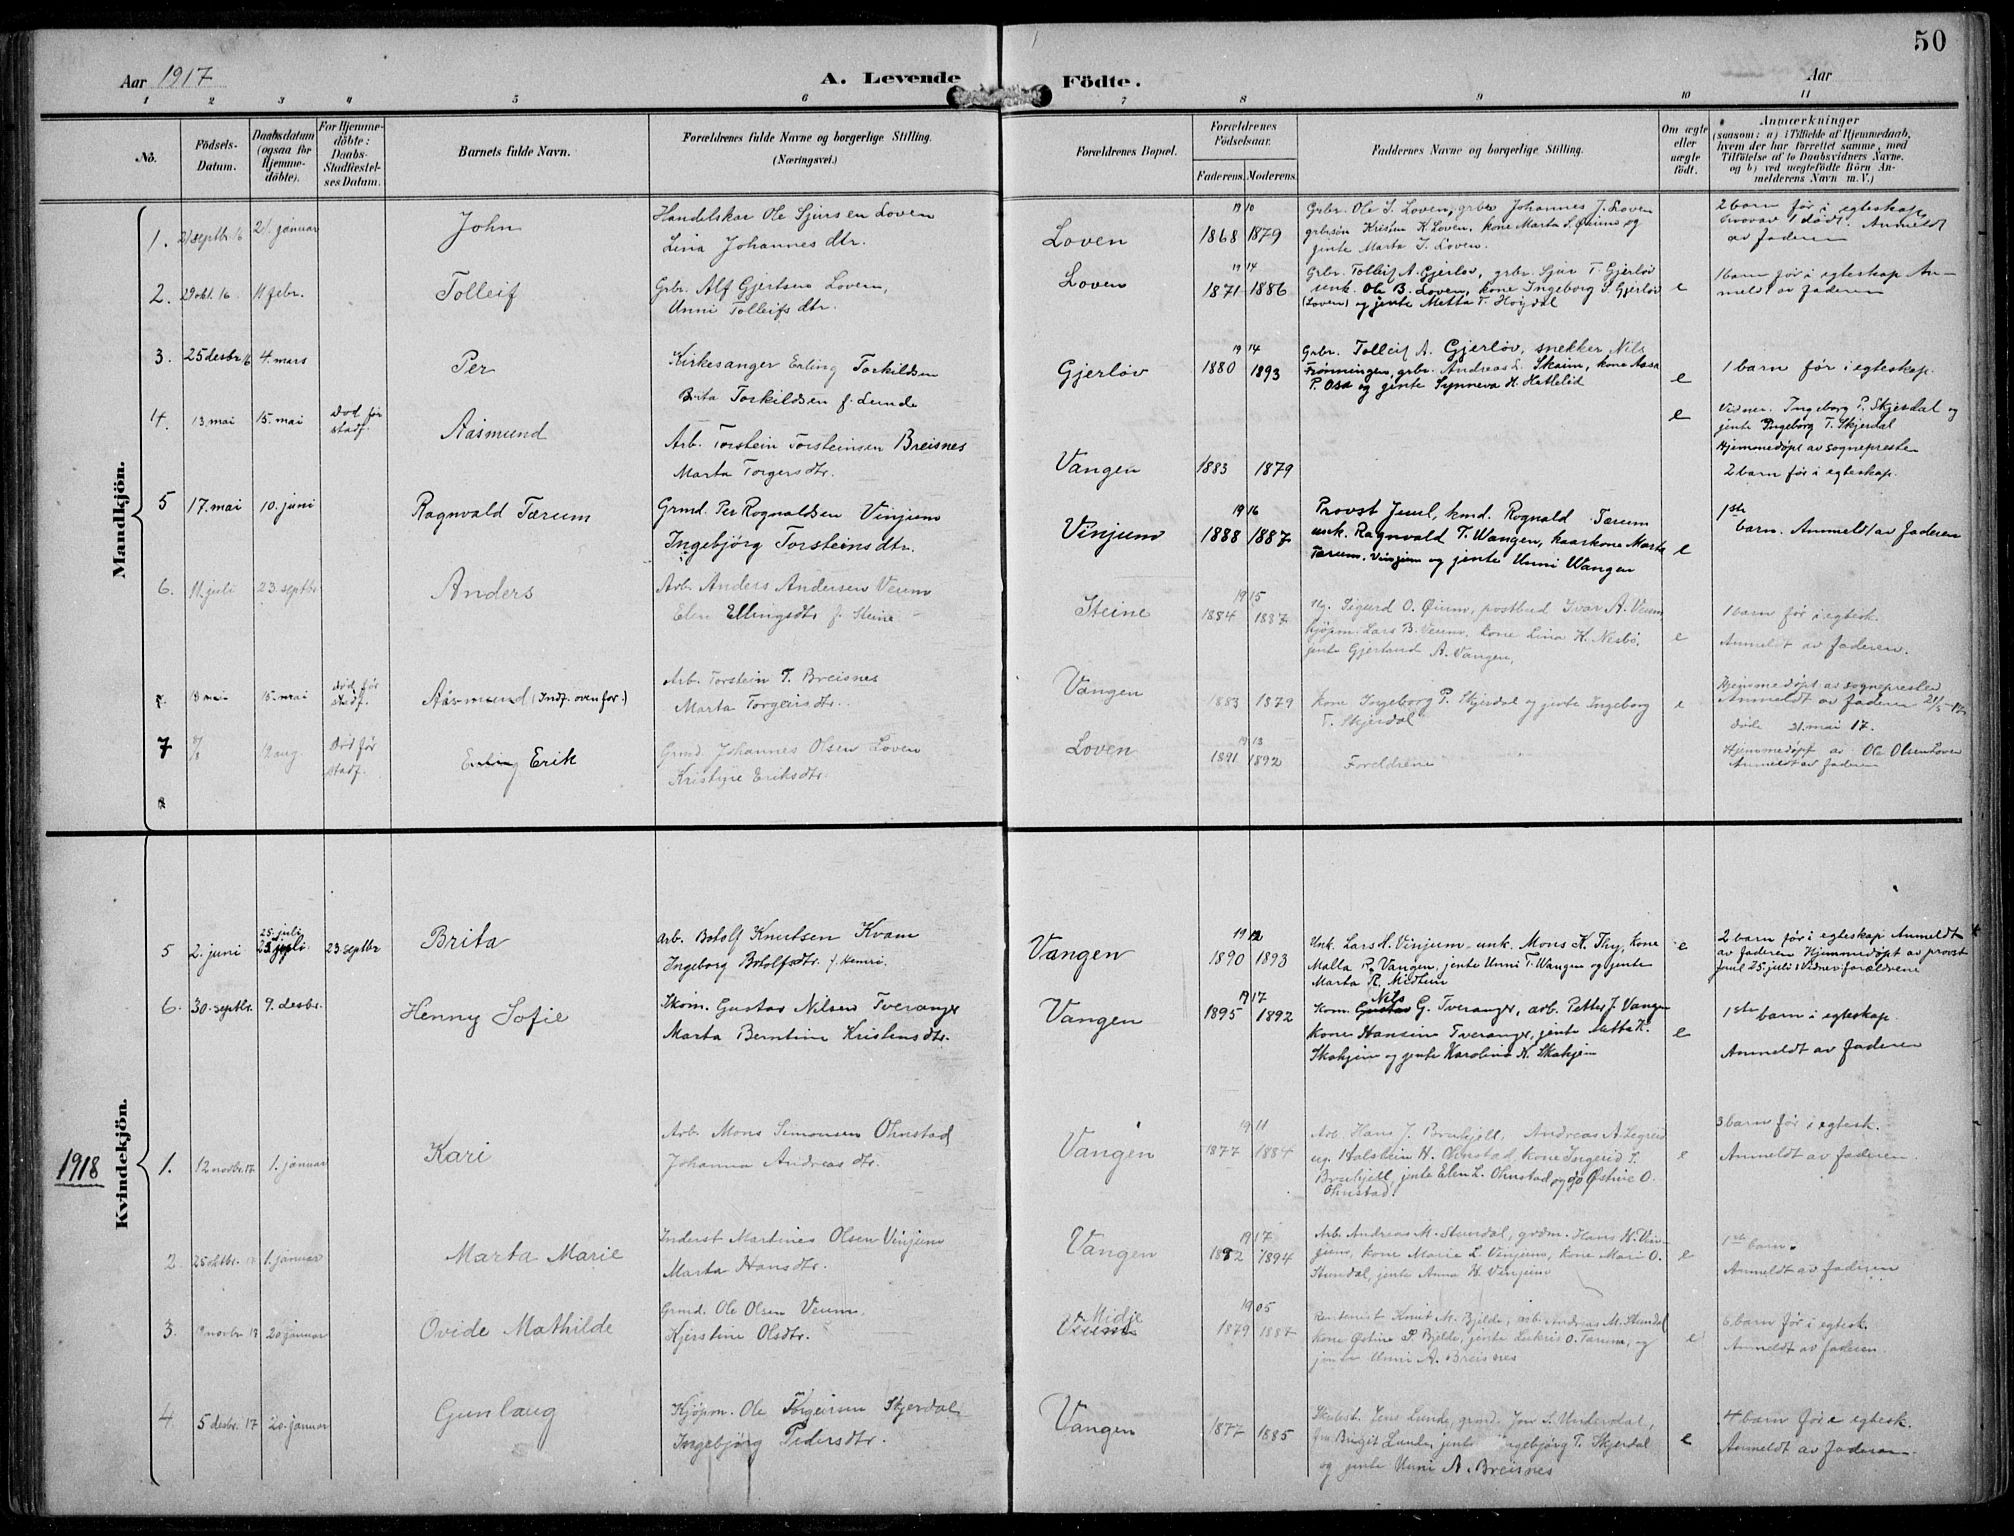 50
Aar 1917
A. Levende Födte.
Aar
1 2 3 4 5 6 7 8 9 10 11
No.
Födsels-Datum.
Daabsdatum (ogsaa for Hjemme-döbte).
For Hjemme-döbte: Daabs-Stadfæstel-ses Datum.
Barnets fulde Navn.
Forældrenes fulde Navne og borgerlige Stilling.
(Næringsvei.)
Forældrenes Bopæl.
Forældrenes Födselsaar.
Faderens. Moderens.
Faddernes Navne og borgerlige Stilling.
Om ægte eller uægte födt.
Anmærkninger
(saasom: a) i Tilfælde af Hjemmedaab,
hvem der har forrettet samme, med
Tilföielse af to Daabsvidners Navne,
og b) ved uægtefödte Börn An-
melderens Navn m. V.)
Mandkjön.
1. 21 septbr 16 21. januar John
Handelskar Ole Sjursen Loven
Lina Johannesdtr.
Loven 19 10 1868 1879
Grbr. Ole S. Loven, grbr Johannes J. Loven
grbrsön Kristen K. Loven, kone Marta S. Øium og
jente Marta J. Loven.
2 barn før i egteskap
hvorav 1 dødt. Anmeldt
av faderen
2. 29 okt. 16 11 febr. Tolleif
Grbr. Alf Gjertsen Loven,
Unni Tolleifsdtr.
Loven 19 14 1871 1886
Grbr. Tolleif A. Gjerløv, grbr. Sjur T. Gjerløv
unk. Ole B. Loven, kone Ingeborg S. Gjerløv
(Loven) og jente Metta T. Høydal
e
1 barn før i egteskap An-
meldt av faderen
3. 25 desbr 16 4. mars Per
Kirkesanger Erling Torkildsen
Brita Torkildsen f. Lunde
Gjerløv 19 14 1880 1893
Grbr. Tolleif A. Gjerløv, snekker Nils
Frønningen, grbr. Andreas L. Skaim, kone Aasa
P. Osa og jente Synneva H. Hatleli
e
1 barn før i egteskap.
4. 13. mai 15. mai Død før stadf. Aasmund
Arb. Torstein Torsteinsen Breisnes
Marta Torgersdtr.
Vangen 1883 1879
e
Vidner. Ingeborg P. Skjerdal og
jente Ingeborg T. Skjerdal
Hjemmedøpt av sognepresten
2 barn før i egteskap.
5 17. mai 10. juni Ragnvald Tærum
Grmd. Per Rognaldsen Vinjum
Ingebjörg Torsteinsdtr.
Vinjum 19 16 1888 1887
Provst Juul, kmd. Rognald Tærum
unk. Ragnvald T. Wangen, kaarkone Marta
Tærum. Vinjum og jente Unni Wangen
e
1ste barn. Anmeldt av faderen
6. 11. juli 23. septbr Anders
Arb. Anders Andersen Veum
Elen Ellingsdtr f. Steine
Steine 19 15 1884 1887
Sigurd O. Øium, postbud Ivar A. Veum
kjøpm. Lars B. Veum, kone Lina H. Nesbø,
jente Gjertrud A. Vangen,
e
1 barn før i egtesk.
Anmeldt av faderen.
13 mai 15. mai død før stadf. Aasmund (Indf. ovenfor.)
Arb. Torstein T. Breisnes
Marta Torgeirsdtr.
Vangen 1883 1879
Kone Ingeborg P. Skjerdal og jente Ingeborg
T. Skjerdal
e
Hjemmedøpt av sognepresten
Anmeldt av faderen 21/5 - 17.
Døde 21. mai 17.
7 8/8 12 aug Død før stadf. Erling Erik
Grmd. Johannes Olsen Loven
Kristine Eriksdtr.
Loven 19 13 1891 1892
Foreldrene
Hjemmedøpt av Ole Olsen Loven
Anmeldt av faderen
8
Kvindekjön.
5 2. juni 25. juli 23. septbr Brita
Arb. Botolf Knutsen Kvam
Ingeborg Botolfsdtr. f. Hemri.
Vangen 19 12 1890 1893
Unk. Lars H. Vinjum, unk. Mons K. Thy, kone
Malla P. Vangen, jente Unni T. Wangen og jente
Marta R. Midtun
e
2 barn før i egteskap Anmeldt
av faderen Hjemmedøpt av provst
Juul 25 juli Vidner forældrene
6. 30. septbr. 9. desbr. Henny Sofie
Skom. Gustav Nilsen Tveranger
Marta Berntine Kristensdtr.
Vangen 19 17 1895 1892
Nils
Kom. Gustav G. Tveranger, arb. Petter J. Vangen
kone Hansine Tveranger, jente Metta K.
Skahjem og jente Karoline K. Skahjem
e
1ste barn i egteskap.
Anmeldt av faderen
1918
1. 12 novbr. 17 1. januar Kari
Arb. Mons Simonsen Ohnstad
Johanna Andreasdtr.
Vangen 19 11 1877 1884
Arb. Hans J. Brukjell, Andreas A. Legreid
ug. Halstein H. Ohnstad, kone Ingerid S.
Brukjell, jente Elen L. Ohnstad og do Østine O.
Ohnstad.
e
3 barn før i egtesk.
Anmeldt av faderen.
2 25 oktbr. 17 1. januar Marta Marie
Inderst Martines Olsen Vinjum
Marta Hansdtr.
Vangen 19 17 1892 1894
Arb. Andreas M. Stundal, grdm. Hans H. Vin-
jum, kone Marie L. Vinjum, kone Mari O.
Stundal, jente Anna H. Vinjum
e
1ste barn.
Anmeldt av faderen
3. novbr 17 20 januar Ovide Mathilde
Grmd. Ole Olsen Veum
Kjerstine Olsdtr.
Midje
Veum 19 05 1879 1887
Rentenist Knut M. Bjelde, arb. Andreas M. Stundal
kone Østine P. Bjelde, jente Lukris O. Tærum, og
jente Unni A. Breisnes
e
6 barn før i egtesk.
Anmeldt av faderen.
4 5 desbr. 17 20. januar Gunlaug
Kjøpm. Ole Torgeirsen Skjerdal
Ingebjørg Pedersdtr.
Vangen 1877 1885
Skibest. Jens Lunde, grmd. Jon S. Underdal,
fru Birgit Lunde, jente Ingebjørg T. Skjerdal
og jente Unni A. Breisnes
e
4 barn før i egtesk.
Anmeldt av faderen.